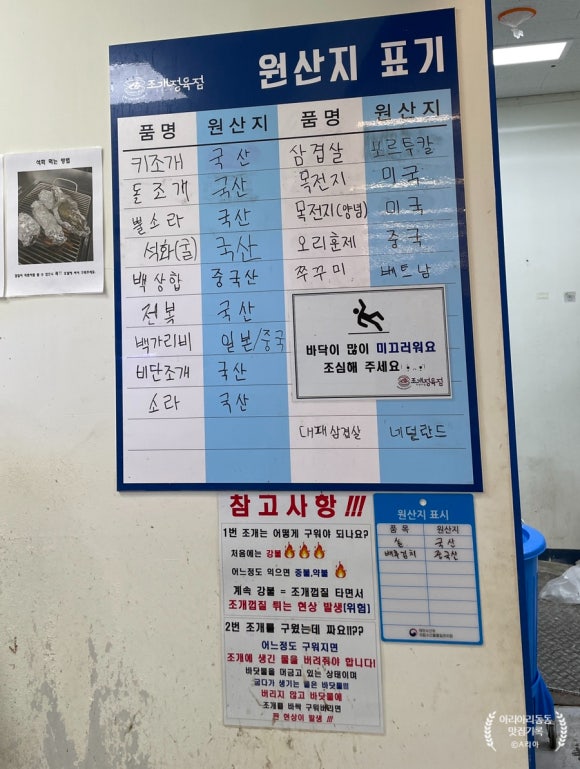 조개정육점
원산지 표기
품명 원산지 품명 원산지
키조개 국산 삼겹살 포르투칼
돌조개 국산 목전지 미국
뿔소라 국산 목전지(양념) 미국
석화(굴) 국산 오리훈제 중국
백상합 중국산 쭈꾸미 베트남
전복 국산
백가리비 일본/중국
비단조개 국산
소라 국산
대패삼겹살 네덜란드
바닥이 많이 미끄러워요
조심해 주세요
조개정육점
석화 먹는 방법
참고사항!!!
1번 조개는 어떻게 구워야 되나요?
처음에는 강불
어느정도 익으면 중불,약불
계속 강불 = 조개껍질 타면서
조개껍질 튀는 현상 발생(위험)
2번 조개를 구웠는데 짜요!!??
어느정도 구워지면
조개에 생긴 물을 버려줘야 합니다!
바닷물을 머금고 있는 상태이며
굽다가 생기는 물은 바닷물!!!
버리지 않고 바닷물에
조개를 바싹 구워버리면
짠 현상이 발생 !!!
원산지 표시
품목 원산지
쌀 국산
배추김치 중국산
아리아리동동
맛집기록
©A리아